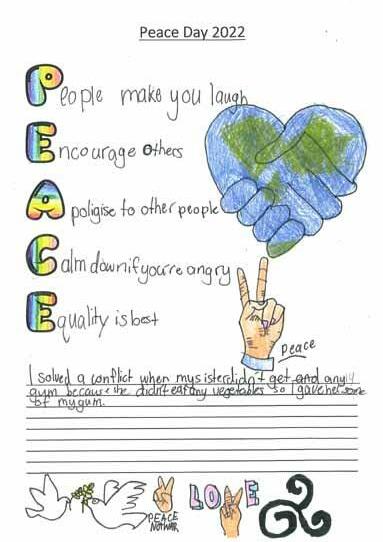 Peace Day 2022
People make you laugh
Encourage others
Apoligise to other people
Calm down if you're angry
Equality is best
Peace
I solved a conflict when my sister didn't get and any
gum because she didn't eat any vegetables so I gave her some
of my gum.
PEACE
NOT WAR
LOVE